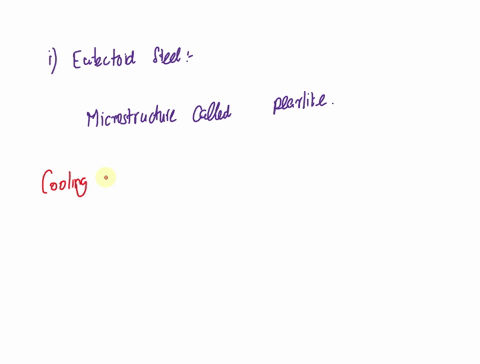 i) Eutectoid Steel :-
Microstructure Called pearlite.
Cooling